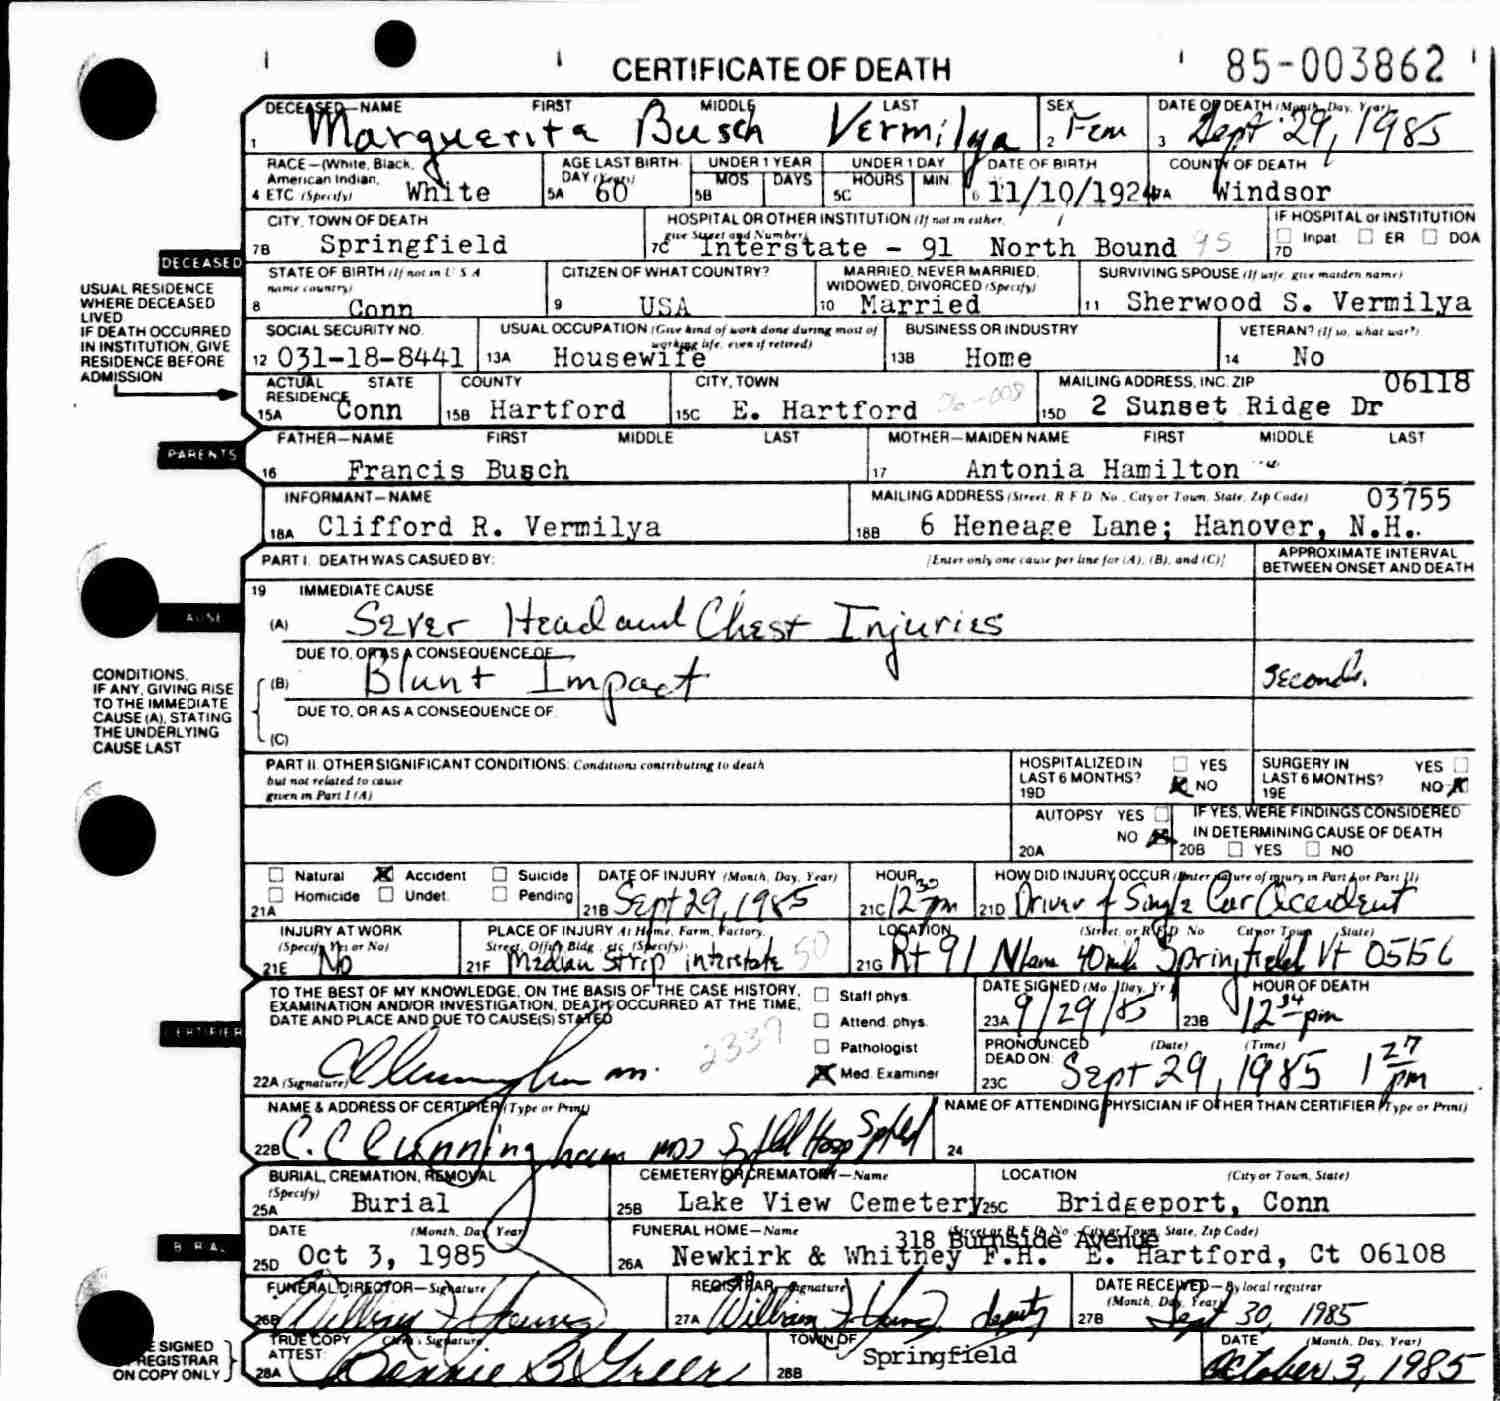 CERTIFICATE OF DEATH 85-003862
DECEASED—NAME FIRST MIDDLE LAST SEX DATE OF DEATH (Month, Day, Year)
1 Marguerita Busch Vermilya 2 Fem 3 Sept 29, 1985
RACE—(White, Black, American Indian, ETC (Specify) AGE LAST BIRTHDAY (Years) UNDER 1 YEAR UNDER 1 DAY DATE OF BIRTH COUNTY OF DEATH
MOS DAYS HOURS MIN
4 White 5A 60 5B 5C 6 11/10/1924 7A Windsor
CITY, TOWN OF DEATH HOSPITAL OR OTHER INSTITUTION (If not in either, give Street and Number) IF HOSPITAL or INSTITUTION
7B Springfield 7C Interstate - 91 North Bound 95 7D Inpat. ER DOA
DECEASED
STATE OF BIRTH (If not in U S A name country) CITIZEN OF WHAT COUNTRY? MARRIED, NEVER MARRIED, WIDOWED, DIVORCED (Specify) SURVIVING SPOUSE (If wife, give maiden name)
8 Conn 9 USA 10 Married 11 Sherwood S. Vermilya
USUAL RESIDENCE
WHERE DECEASED
LIVED
IF DEATH OCCURRED
IN INSTITUTION, GIVE
RESIDENCE BEFORE
ADMISSION
SOCIAL SECURITY NO. USUAL OCCUPATION (Give kind of work done during most of working life, even if retired) BUSINESS OR INDUSTRY VETERAN? (If so, what war?)
12 031-18-8441 13A Housewife 13B Home 14 No
ACTUAL RESIDENCE STATE COUNTY CITY, TOWN MAILING ADDRESS, INC. ZIP 06118
15A Conn 15B Hartford 15C E. Hartford 06-008 15D 2 Sunset Ridge Dr
PARENTS
FATHER—NAME FIRST MIDDLE LAST MOTHER—MAIDEN NAME FIRST MIDDLE LAST
16 Francis Busch 17 Antonia Hamilton
INFORMANT—NAME MAILING ADDRESS (Street, R F D No., City or Town, State, Zip Code) 03755
18A Clifford R. Vermilya 18B 6 Heneage Lane; Hanover, N.H.
PART I. DEATH WAS CASUED BY: [Enter only one cause per line for (A), (B), and (C)] APPROXIMATE INTERVAL BETWEEN ONSET AND DEATH
19 IMMEDIATE CAUSE
(A) Sever Head and Chest Injuries
DUE TO, OR AS A CONSEQUENCE OF
(B) Blunt Impact seconds.
DUE TO, OR AS A CONSEQUENCE OF
(C)
CONDITIONS,
IF ANY, GIVING RISE
TO THE IMMEDIATE
CAUSE (A), STATING
THE UNDERLYING
CAUSE LAST
PART II. OTHER SIGNIFICANT CONDITIONS: Conditions contributing to death
but not related to cause
given in Part I (A)
HOSPITALIZED IN LAST 6 MONTHS? 19D YES X NO
SURGERY IN LAST 6 MONTHS? 19E YES NO X
AUTOPSY YES NO X 20A
IF YES, WERE FINDINGS CONSIDERED IN DETERMINING CAUSE OF DEATH 20B YES NO
Natural X Accident Suicide DATE OF INJURY (Month, Day, Year) HOUR HOW DID INJURY OCCUR (Enter nature of injury in Part I or Part II)
Homicide Undet. Pending
21A 21B Sept 29, 1985 21C 12 30 pm 21D Driver of Single Car Accident
INJURY AT WORK (Specify Yes or No) PLACE OF INJURY At Home, Farm, Factory, Street, Office Bldg., etc. (Specify) LOCATION (Street, or R F D No City or Town State)
21E No 21F Median Strip interstate 50 21G Rt 91 Springfield Vt 05156
CERTIFIER
TO THE BEST OF MY KNOWLEDGE, ON THE BASIS OF THE CASE HISTORY,
EXAMINATION AND/OR INVESTIGATION, DEATH OCCURRED AT THE TIME,
DATE AND PLACE AND DUE TO CAUSE(S) STATED
2339
22A (Signature)
Staff phys.
Attend. phys.
Pathologist
X Med. Examiner
DATE SIGNED (Mo., Day, Yr.) HOUR OF DEATH
23A 9/29/85 23B 12 34 pm
PRONOUNCED DEAD ON (Date) (Time)
23C Sept 29, 1985 1 27 pm
NAME & ADDRESS OF CERTIFIER (Type or Print) NAME OF ATTENDING PHYSICIAN IF OTHER THAN CERTIFIER (Type or Print)
22B C. C Cunningham Hosp 24
BURIAL, CREMATION, REMOVAL (Specify) CEMETERY OR CREMATORY—Name LOCATION (City or Town, State)
25A Burial 25B Lake View Cemetery 25C Bridgeport, Conn
DATE (Month, Day, Year) FUNERAL HOME—Name (Street or R.F.D. No., City or Town, State, Zip Code)
318 Burnside Avenue
25D Oct 3, 1985 26A Newkirk & Whitney F.H. E. Hartford, Ct 06108
FUNERAL DIRECTOR—Signature REGISTRAR—(Signature) DATE RECEIVED—By local registrar (Month, Day, Year)
26B William F Young 27A William F Young deputy 27B Sept 30, 1985
TRUE COPY ATTEST: Signature TOWN OF DATE (Month, Day, Year)
28A Bonnie B. Greer 28B Springfield October 3, 1985
SIGNED
REGISTRAR
ON COPY ONLY